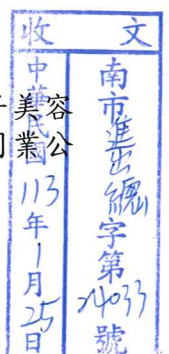 收文
南市進出總字第24033號
中華民國113年1月25日
美容
業公